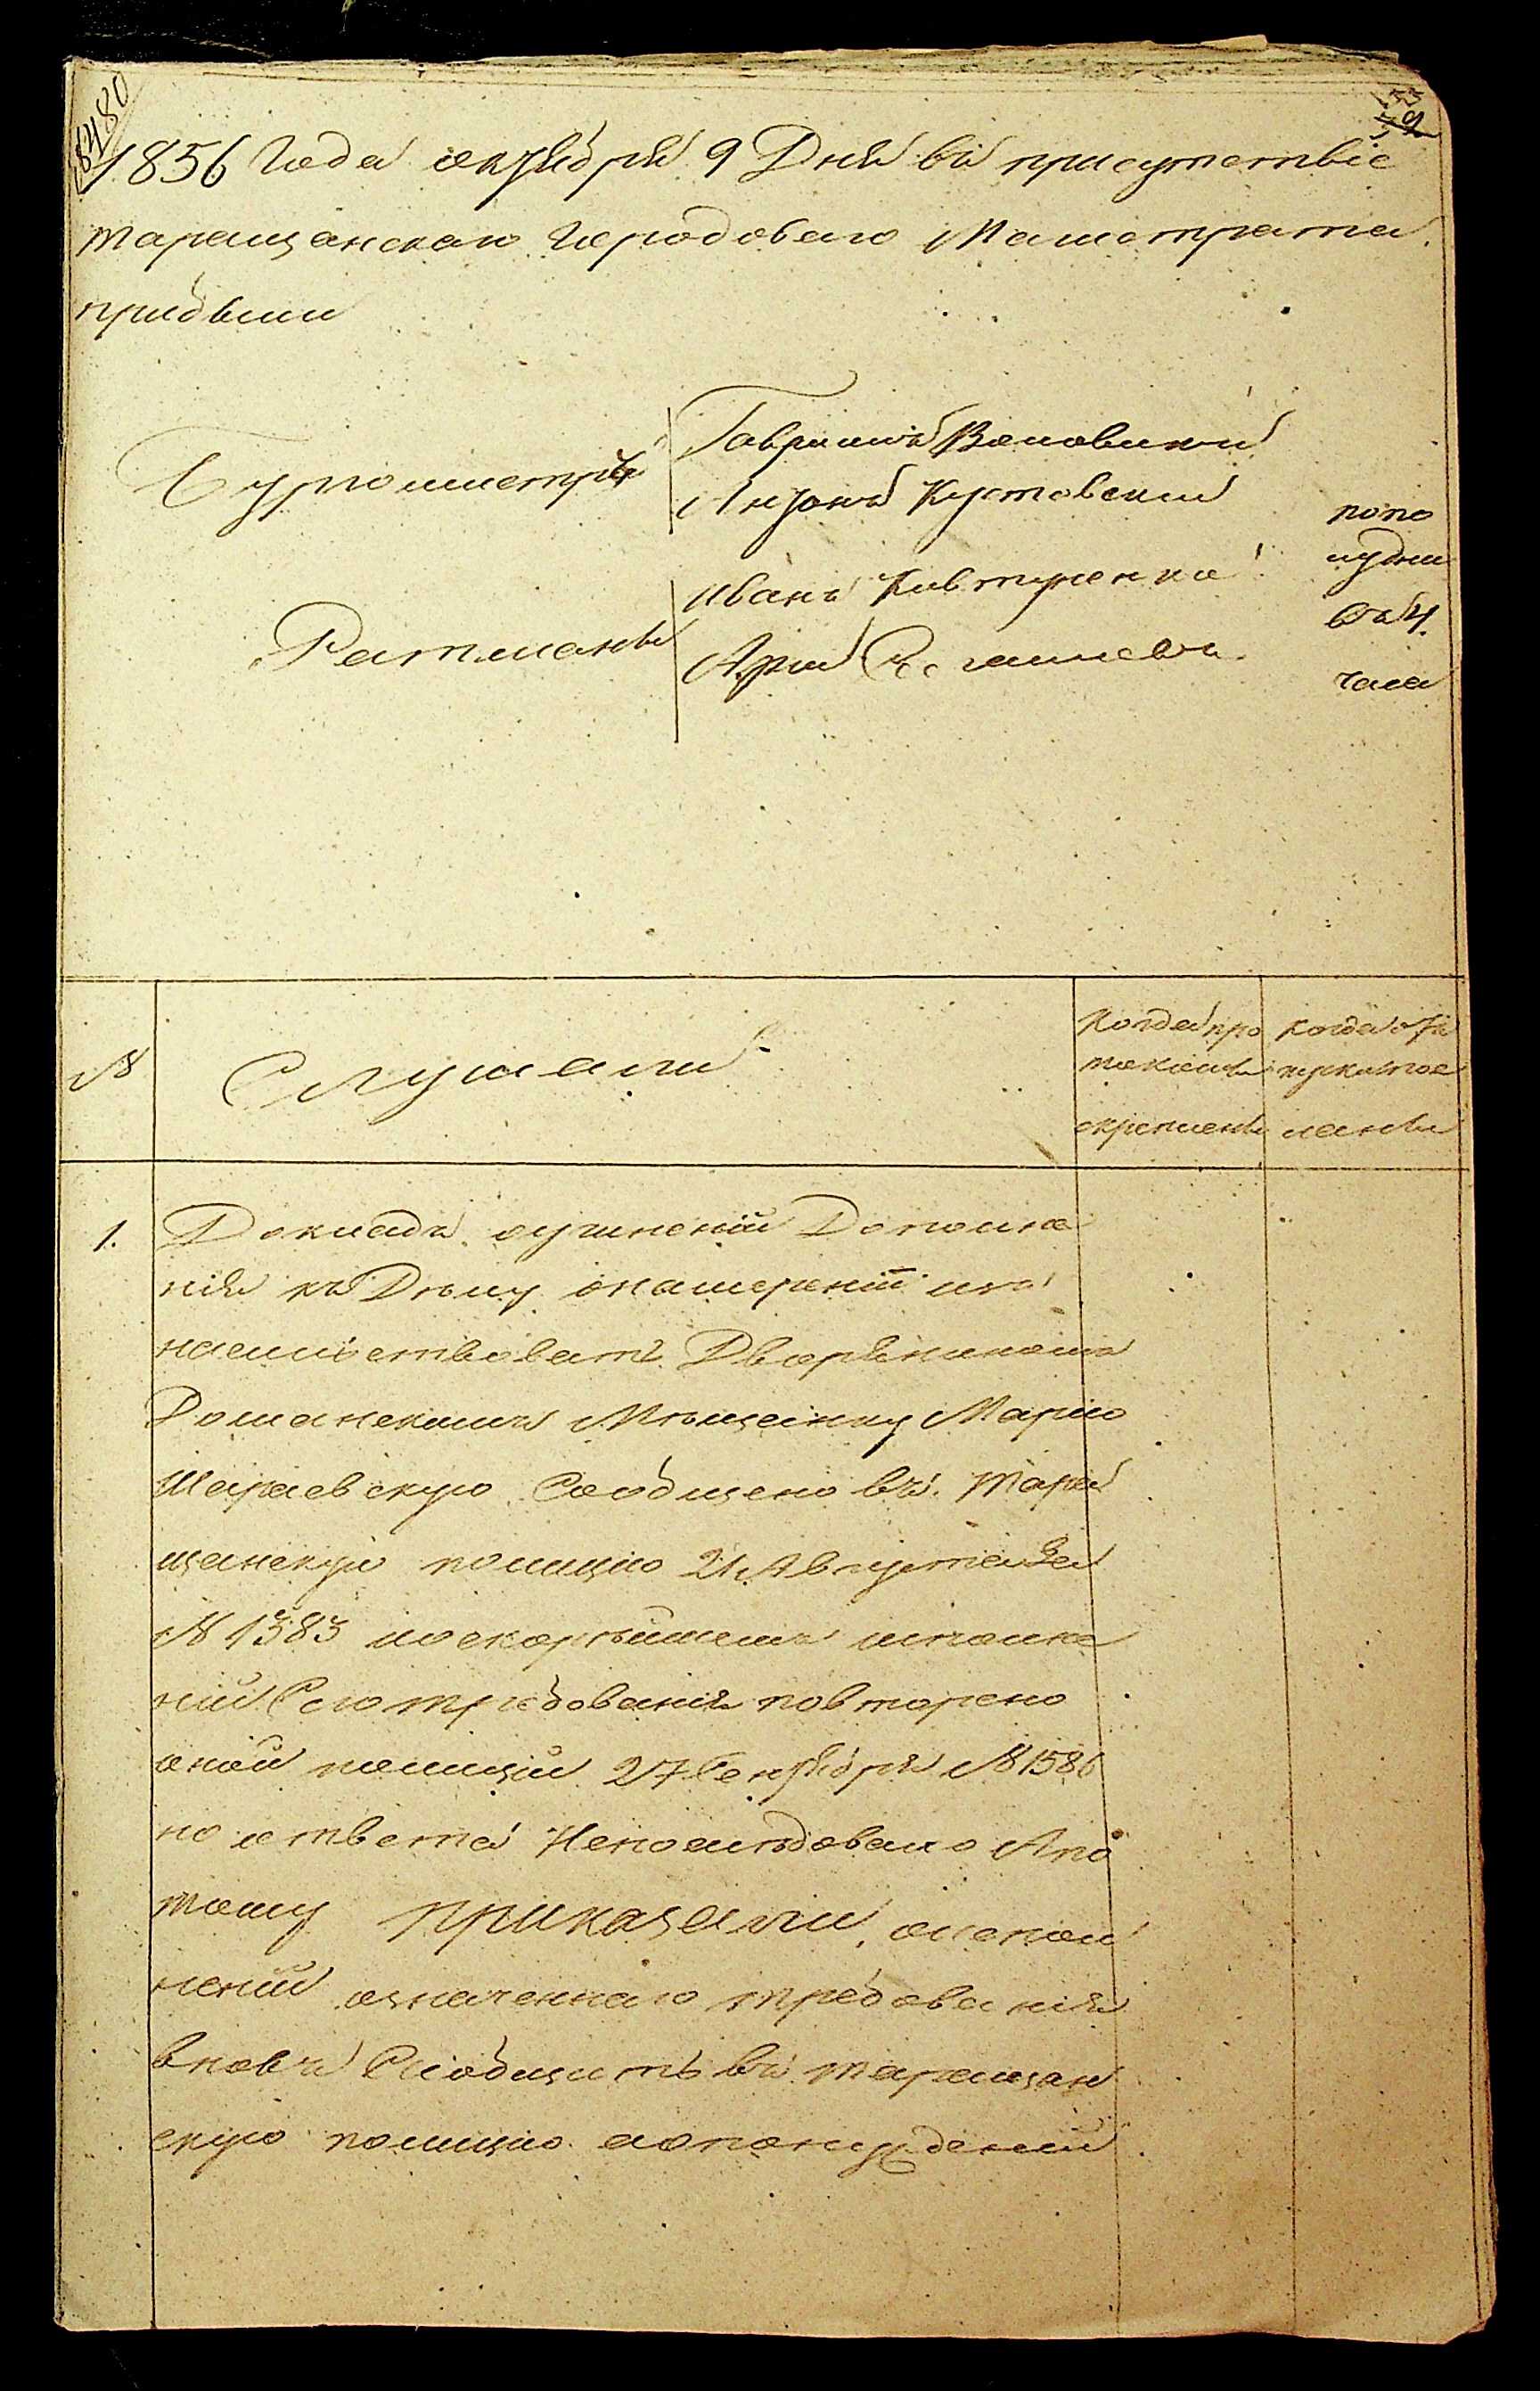 1856 года октября 9 Дня въ присутствіе
таращанскаго городоваго Магистрата
прибыли
Бургомистръ
Гавриилъ
Антонъ Кустовскій
Ратманы
Иванъ Ковтуненко
по по
лудни
въ 4.
часа
№
Слушали
Когда про
токолы
скреплены
Когда от
пускитое
ланы
1.
Докладъ. оучиненіи Дополне
нія къ Дѣлу онамереніи из
насильствовать Дворяниномъ
Романскимъ Мѣщанку Марію
Шараевскую Сообщено въ Тара
щанскую полицію 21 Августа за
№ 1383 поскорѣйшемъ исполне
ніи Сего требованія повторено
оной полиціи 27 Сентября № 1586
но ответа Непоследовало Апо
тому приказали, оиспол
неніи означеннаго требованія
вновь Сообщить въ таращан
скую полицію опонужденіи